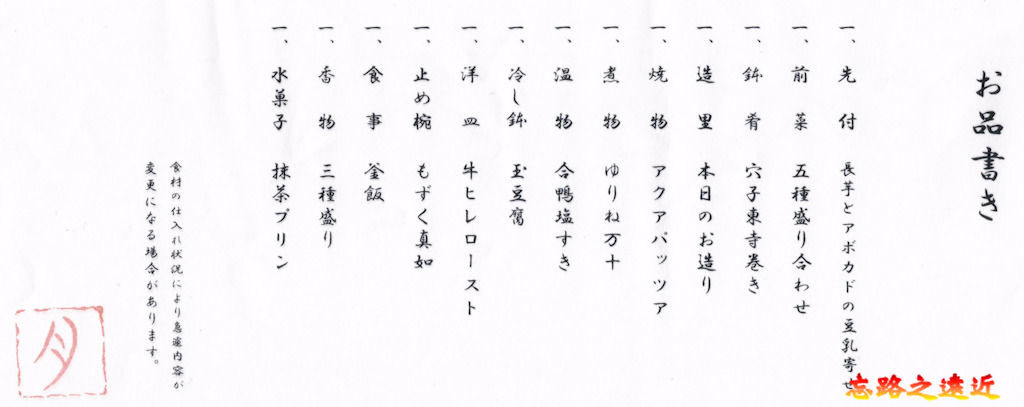 お品書き
一、先付 長芋とアボカドの豆乳寄せ
一、前菜 五種盛り合わせ
一、鉢肴 穴子東寺巻き
一、造里 本日のお造り
一、焼物 アクアパッツア
一、煮物 ゆりね万十
一、温物 合鴨塩すき
一、冷し鉢 玉豆腐
一、洋皿 牛ヒレロースト
一、止め椀 もずく真如
一、食事 釜飯
一、香物 三種盛り
一、水菓子 抹茶プリン
食材の仕入れ状況により急遽内容が
変更になる場合があります。
月
忘路之遠近